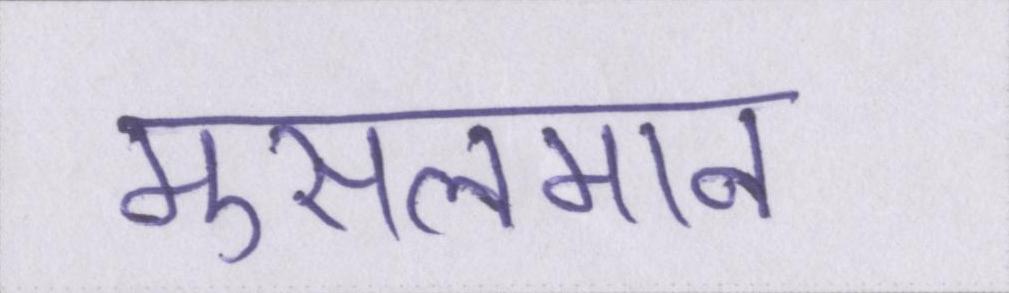 मुसलमान